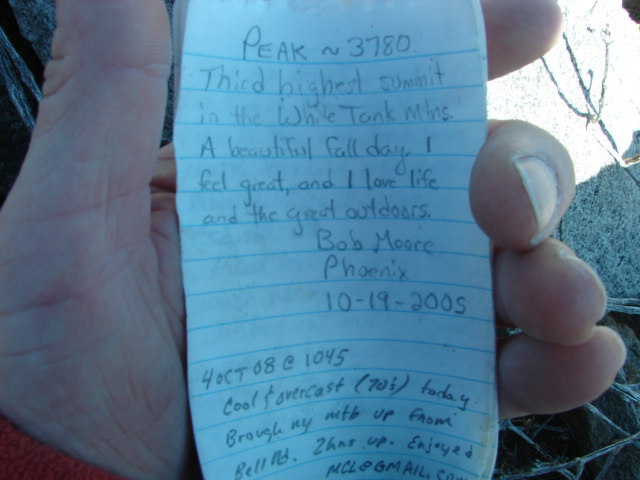 PEAK ~ 3780
Third highest summit
in the White Tank Mtns.
A beautiful fall day. I
feel great, and I love life
and the great outdoors.
Bob Moore
Phoenix
10-19-2005
4 OCT 08 @ 1045
Cool & overcast (70's) today.
Brough my mtb up from
Bell Rd. 2hrs up. Enjoyed
MCL@GMAIL.COM